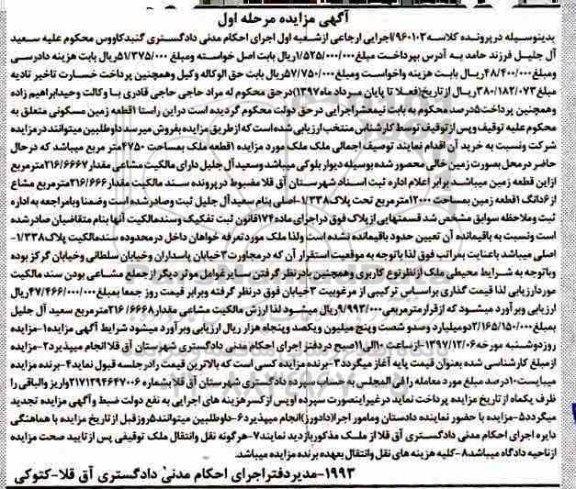 آگهی مزایده مرحله اول
بدینوسیله درپرونده کلاسه ۹۶۰۱۰۳/اجرایی ارجاعی ازشعبه اول اجرای احکام مدنی دادگستری گنبدکاووس محکوم علیه سعید
آل جلیل فرزند حامد به آدرس بپرداخت مبلغ ۱/۵۲۵/۰۰۰/۰۰۰ریال بابت اصل خواسته ومبلغ ۵۱/۳۷۵/۰۰۰ریال بابت هزینه دادرسی
ومبلغ ۴۸/۴۰۰/۰۰۰ریال بابت هزینه واخواست ومبلغ ۵۷/۷۵۰/۰۰۰ریال بابت حق الوکاله وکیل وهمچنین پرداخت خسارت تاخیر تادیه
مبلغ ۳۸۰/۱۸۲/۰۷۳ریال ازتاریخ(فعلا تا پایان مرداد ماه ۱۳۹۷)درحق محکوم له مراد حاجی حاجی قادری با وکالت وحیدابراهیم زاده
وهمچنین پرداخت۵درصد محکوم به بابت نیمعشراجرایی درحق دولت محکوم گردیده است دراین راستا ۱قطعه زمین مسکونی متعلق به
محکوم علیه توقیف وپس ازتوقیف توسط کارشناس منتخب ارزیابی شده است که ازطریق مزایده بفروش میرسد داوطلبین میتوانند درمزایده
شرکت ونسبت به خرید آن اقدام نمایند توصیف اجمالی ملک مورد مزایده ۱قطعه ملک بمساحت ۴۷۵۰ متر مربع میباشد که در حال
حاضر در محل بصورت زمین خالی محصور شده بوسیله دیوار بلوکی میباشد وسعید آل جلیل دارای مالکیت مشاعی مقدار ۲۱۶/۶۶۶۷مترمربع
ازاین قطعه زمین میباشد برابر اعلام اداره ثبت اسناد شهرستان آق قلا مضبوط درپرونده سند مالکیت مقدار ۲۱۶/۶۶۶مترمربع مشاع
از۶دانگ ۱قطعه زمین بمساحت ۱۲۰۰۰مترمربع تحت پلاک ۱/۳۳۸-اصلی بنام سعید آل جلیل ثبت وصادرشده است وضمنا وبامراجعه به اداره
ثبت وملاحظه سوابق مشخص شد قسمتهایی از پلاک فوق دراجرای ماده۱۴۷قانون ثبت تفکیک وسندمالکیت آنها بنام متقاضیان صادرشده
است ونسبت به باقیمانده آن تعیین حدود باقیمانده نشده است ولذا ملک موردتعرفه خواهان داخل درمحدوده سندمالکیت پلاک ۱/۳۳۸-
اصلی میباشد باعنایت بمراتب فوق لذا باتوجه به موقعیت استقرار آن که درمجاورت ۳خیابان پاسداران وخیابان سلطانی وخیابان گرکز بوده
وباتوجه به شرایط محیطی ملک ازنظرنوع کاربری وهمچنین بادرنظر گرفتن سایرعوامل موثر دیگر ازجمله مشاعی بودن سند مالکیت
مورد ارزیابی لذا قیمت گذاری براساس ترکیبی از مرغوبیت ۳خیابان فوق درنظر گرفته وبرابر قیمت روز جمعا بمبلغ ۴۷/۴۶۶/۰۰۰/۰۰۰ریال
ارزیابی وبرآورد میشود که ازقرار مترمربعی ۹/۹۹۳/۰۰۰ریال میشود لذا ارزش مالکیت مشاعی مقدار ۲۱۶/۶۶۶۸مترمربع سعید آل جلیل
بمبلغ ۲/۱۶۵/۱۵۰/۰۰۰دومیلیارد وصدو شصت وپنج میلیون ویکصد وپنجاه هزار ریال ارزیابی وبرآورد میشود شرایط آگهی مزایده ۱-مزایده
روز دوشنبه مورخه ۱۳۹۷/۱۲/۰۶-ازساعت ۱۰الی ۱۱صبح دردفتر اجرای احکام مدنی دادگستری شهرستان آق قلا انجام میپذیرد۲-مزایده
ازمبلغ کارشناسی شده بعنوان قیمت پایه آغاز میگردد ۳-برنده مزایده کسی است که بالاترین قیمت را درجلسه قبول نماید۴-برنده مزایده
میبایست ۱۰درصد مبلغ مورد معامله را فی المجلس به حساب سپرده دادگستری شهرستان آق قلا بشماره ۲۱۷۱۲۹۴۶۴۷۰۰۶واریز والباقی را
ظرف یکماه از تاریخ مزایده پرداخت نماید درغیراینصورت سپرده اوپس ازکسر هزینه های اجرایی به نفع دولت ضبط وآگهی مزایده تجدید
میگردد۵-مزایده با حضور نماینده دادستان ومامور اجرا(دادورز)انجام میپذیرد۶-داوطلبین میتوانند۵روزقبل از تاریخ مزایده با هماهنگی
دایره اجرای احکام مدنی دادگستری آق قلا از ملک مذکوربازدید نمایند۷-هرگونه نقل وانتقال ملک توقیفی پس از تایید صحت مزایده
ازناحیه دادگاه میباشد۸-کلیه هزینه های نقل وانتقال بعهده برنده مزایده میباشد.
۱۹۹۳-مدیردفتراجرای احکام مدنی دادگستری آق قلا-کتوکی